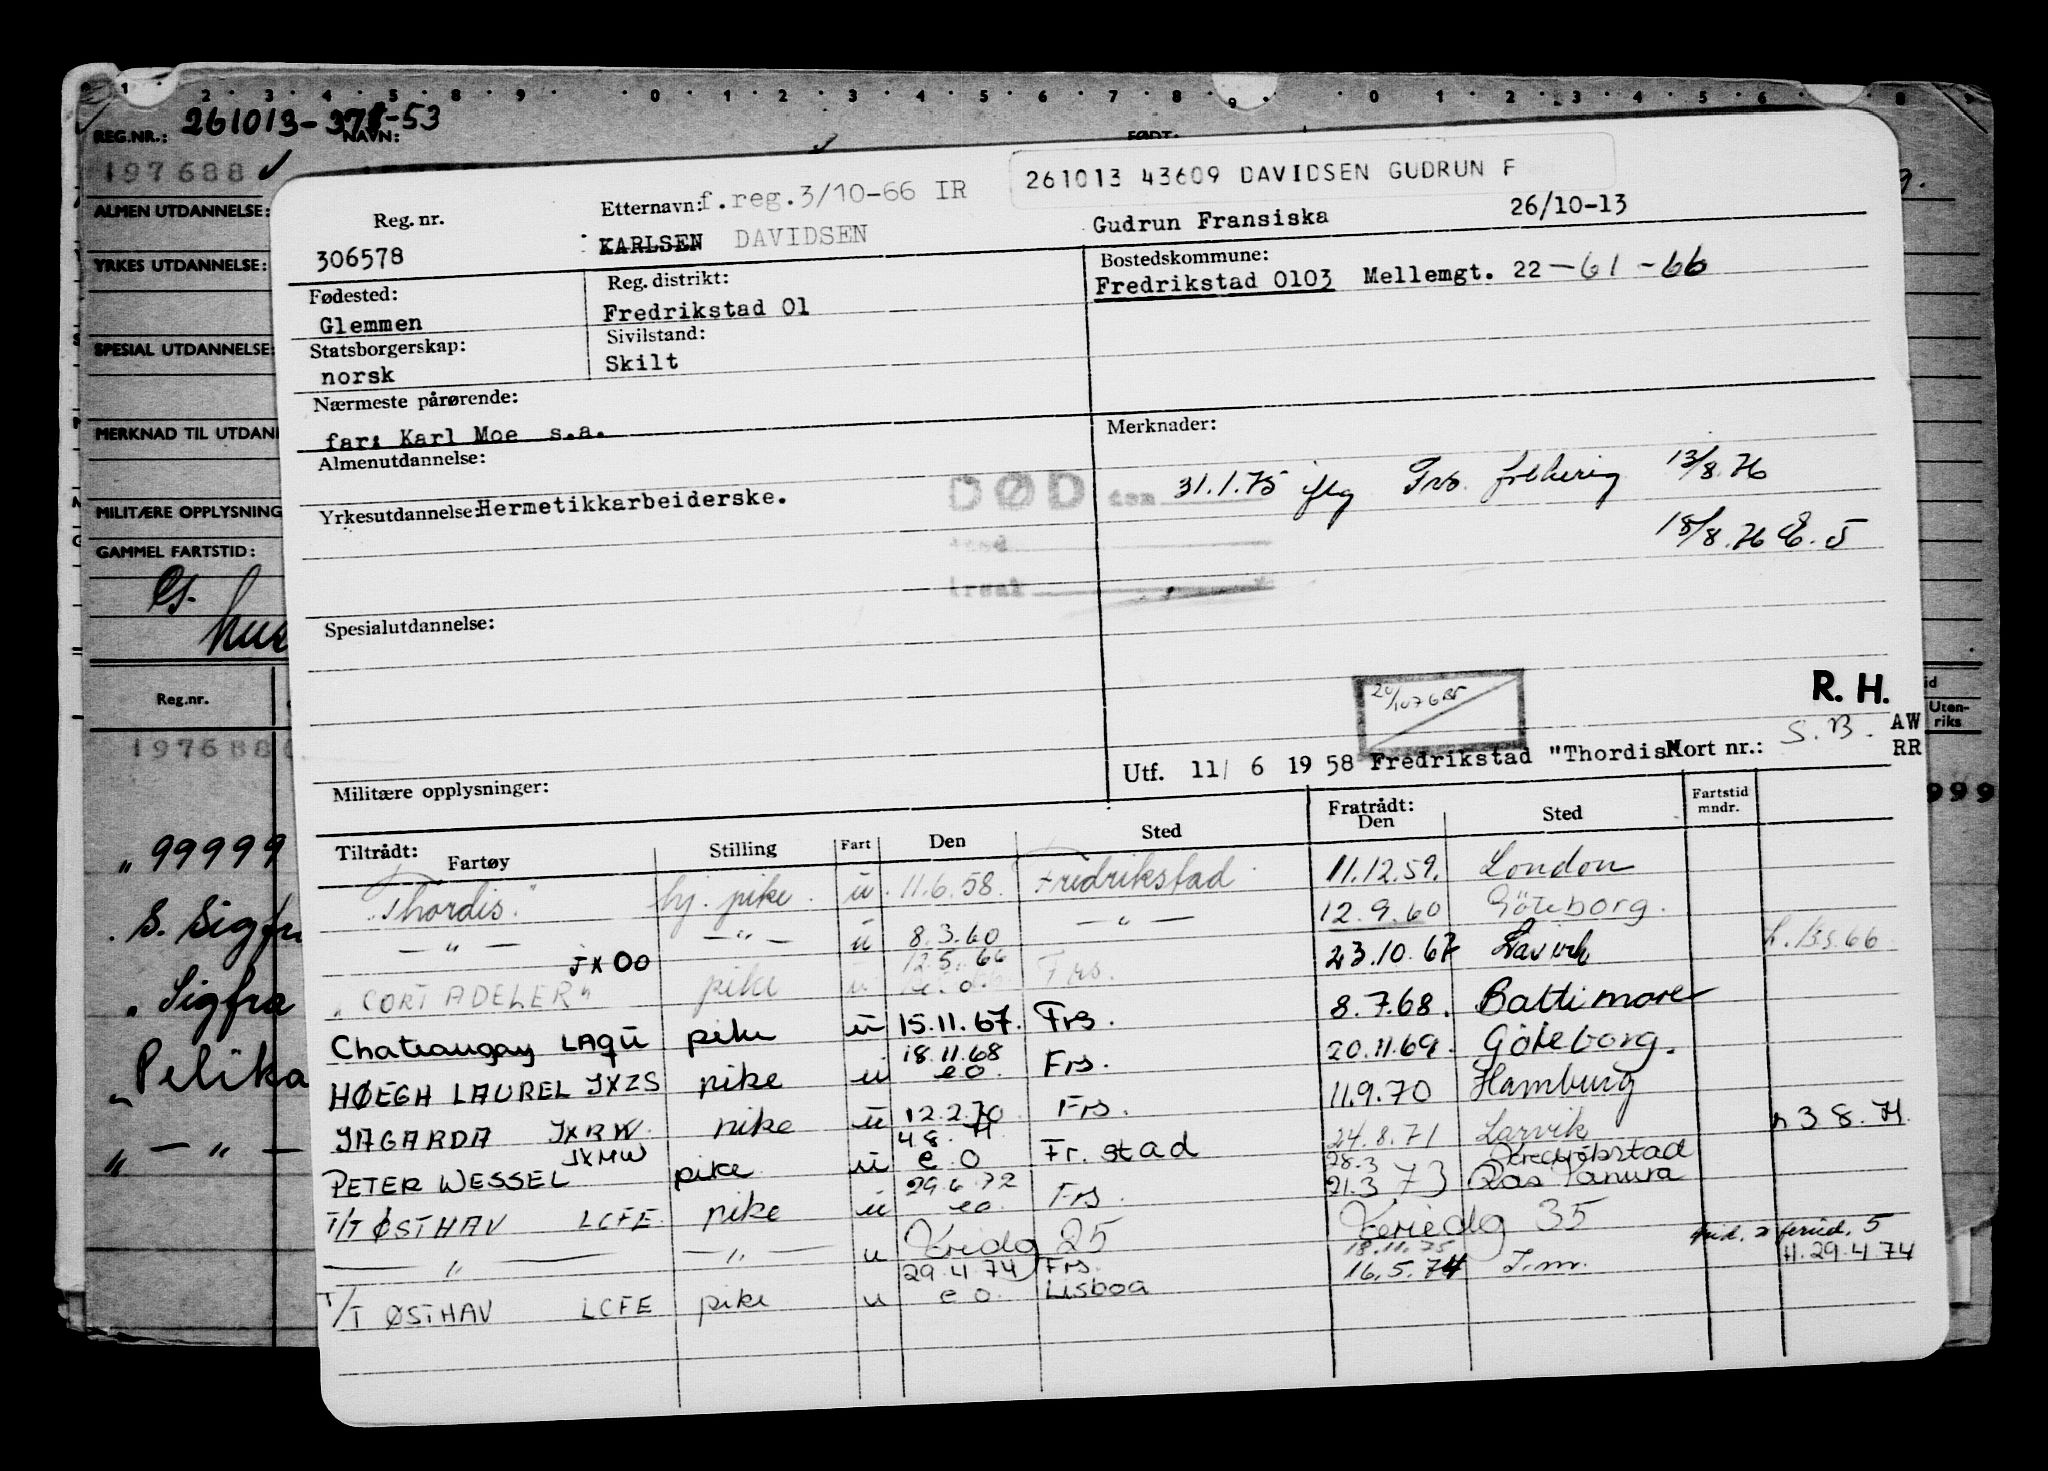 261013-371-53
REG.NR.: NAVN: FØDT:
197688
ALMEN UTDANNELSE:
YRKES UTDANNELSE:
SPESIAL UTDANNELSE:
MERKNAD TIL UTDAN
MILITÆRE OPPLYSNING
GAMMEL FARTSTID:
hus
Reg.nr.
197688
" 99999
S. Sigfr
" Sigfra
" Pelika
" — " —
Uten-
riks
999
261013 43609 DAVIDSEN GUDRUN F
Reg. nr. Etternavn: f.reg.3/10-66 IR
306578 KARLSEN DAVIDSEN Gudrun Fransiska 26/10-13
Fødested: Reg. distrikt: Bostedskommune:
Glemmen Fredrikstad 01 Fredrikstad 0103 Mellemgt. 22 -61-66
Statsborgerskap: Sivilstand:
norsk Skilt
Nærmeste pårørende:
far: Karl Moe s.a.
Merknader:
Almenutdannelse:
DØD den 31.1.75 iflg 13/8.76
Yrkesutdannelse: Hermetikkarbeiderske.
18/8.76 E.5
Spesialutdannelse:
R. H.
S.B. AW
RR
Utf. 11/ 6 1958 Fredrikstad "Thordis" Kort nr.:
Militære opplysninger:
Tiltrådt: Fartøy Stilling Fart Den Sted Fratrådt: Den Sted Fartstid mndr.
"Thordis" hj. pike u 11.6.58. Fredrikstad 11.12.59. London
— " — — " — u 8.3.60 — " — 12.9.60 Göteborg.
JXOO 12.5.66
"CORT ADELER" pike u Frs. 23.10.67 Larvik
Chateaugay LAQU pike u 15.11.67. Frs. 8.7.68. Baltimore
18.11.68
HØEGH LAUREL JXZS pike u eo. Frs. 20.11.69. Göteborg.
JAGARDA JXRW pike u 12.2.70 Frs. 11.9.70 Hamburg
JXMW 4.8.71
PETER WESSEL pike u e.o Fr.stad 24.8.71 Larvik h 3 8.71.
29.6.72 28.3
T/T ØSTHAV LCFE pike u eo. Frs. 21.3 73 Ras Tanura
— " — — " — u Feriedg 25 Feriedg 35
29.4.74 Frs. 18.11.75 H.29.4.74
T/T ØSTHAV LCFE pike u e o. Lisboa 16.5.74